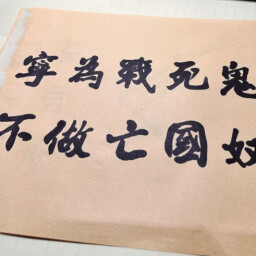 寧為戰死鬼
不做亡國奴